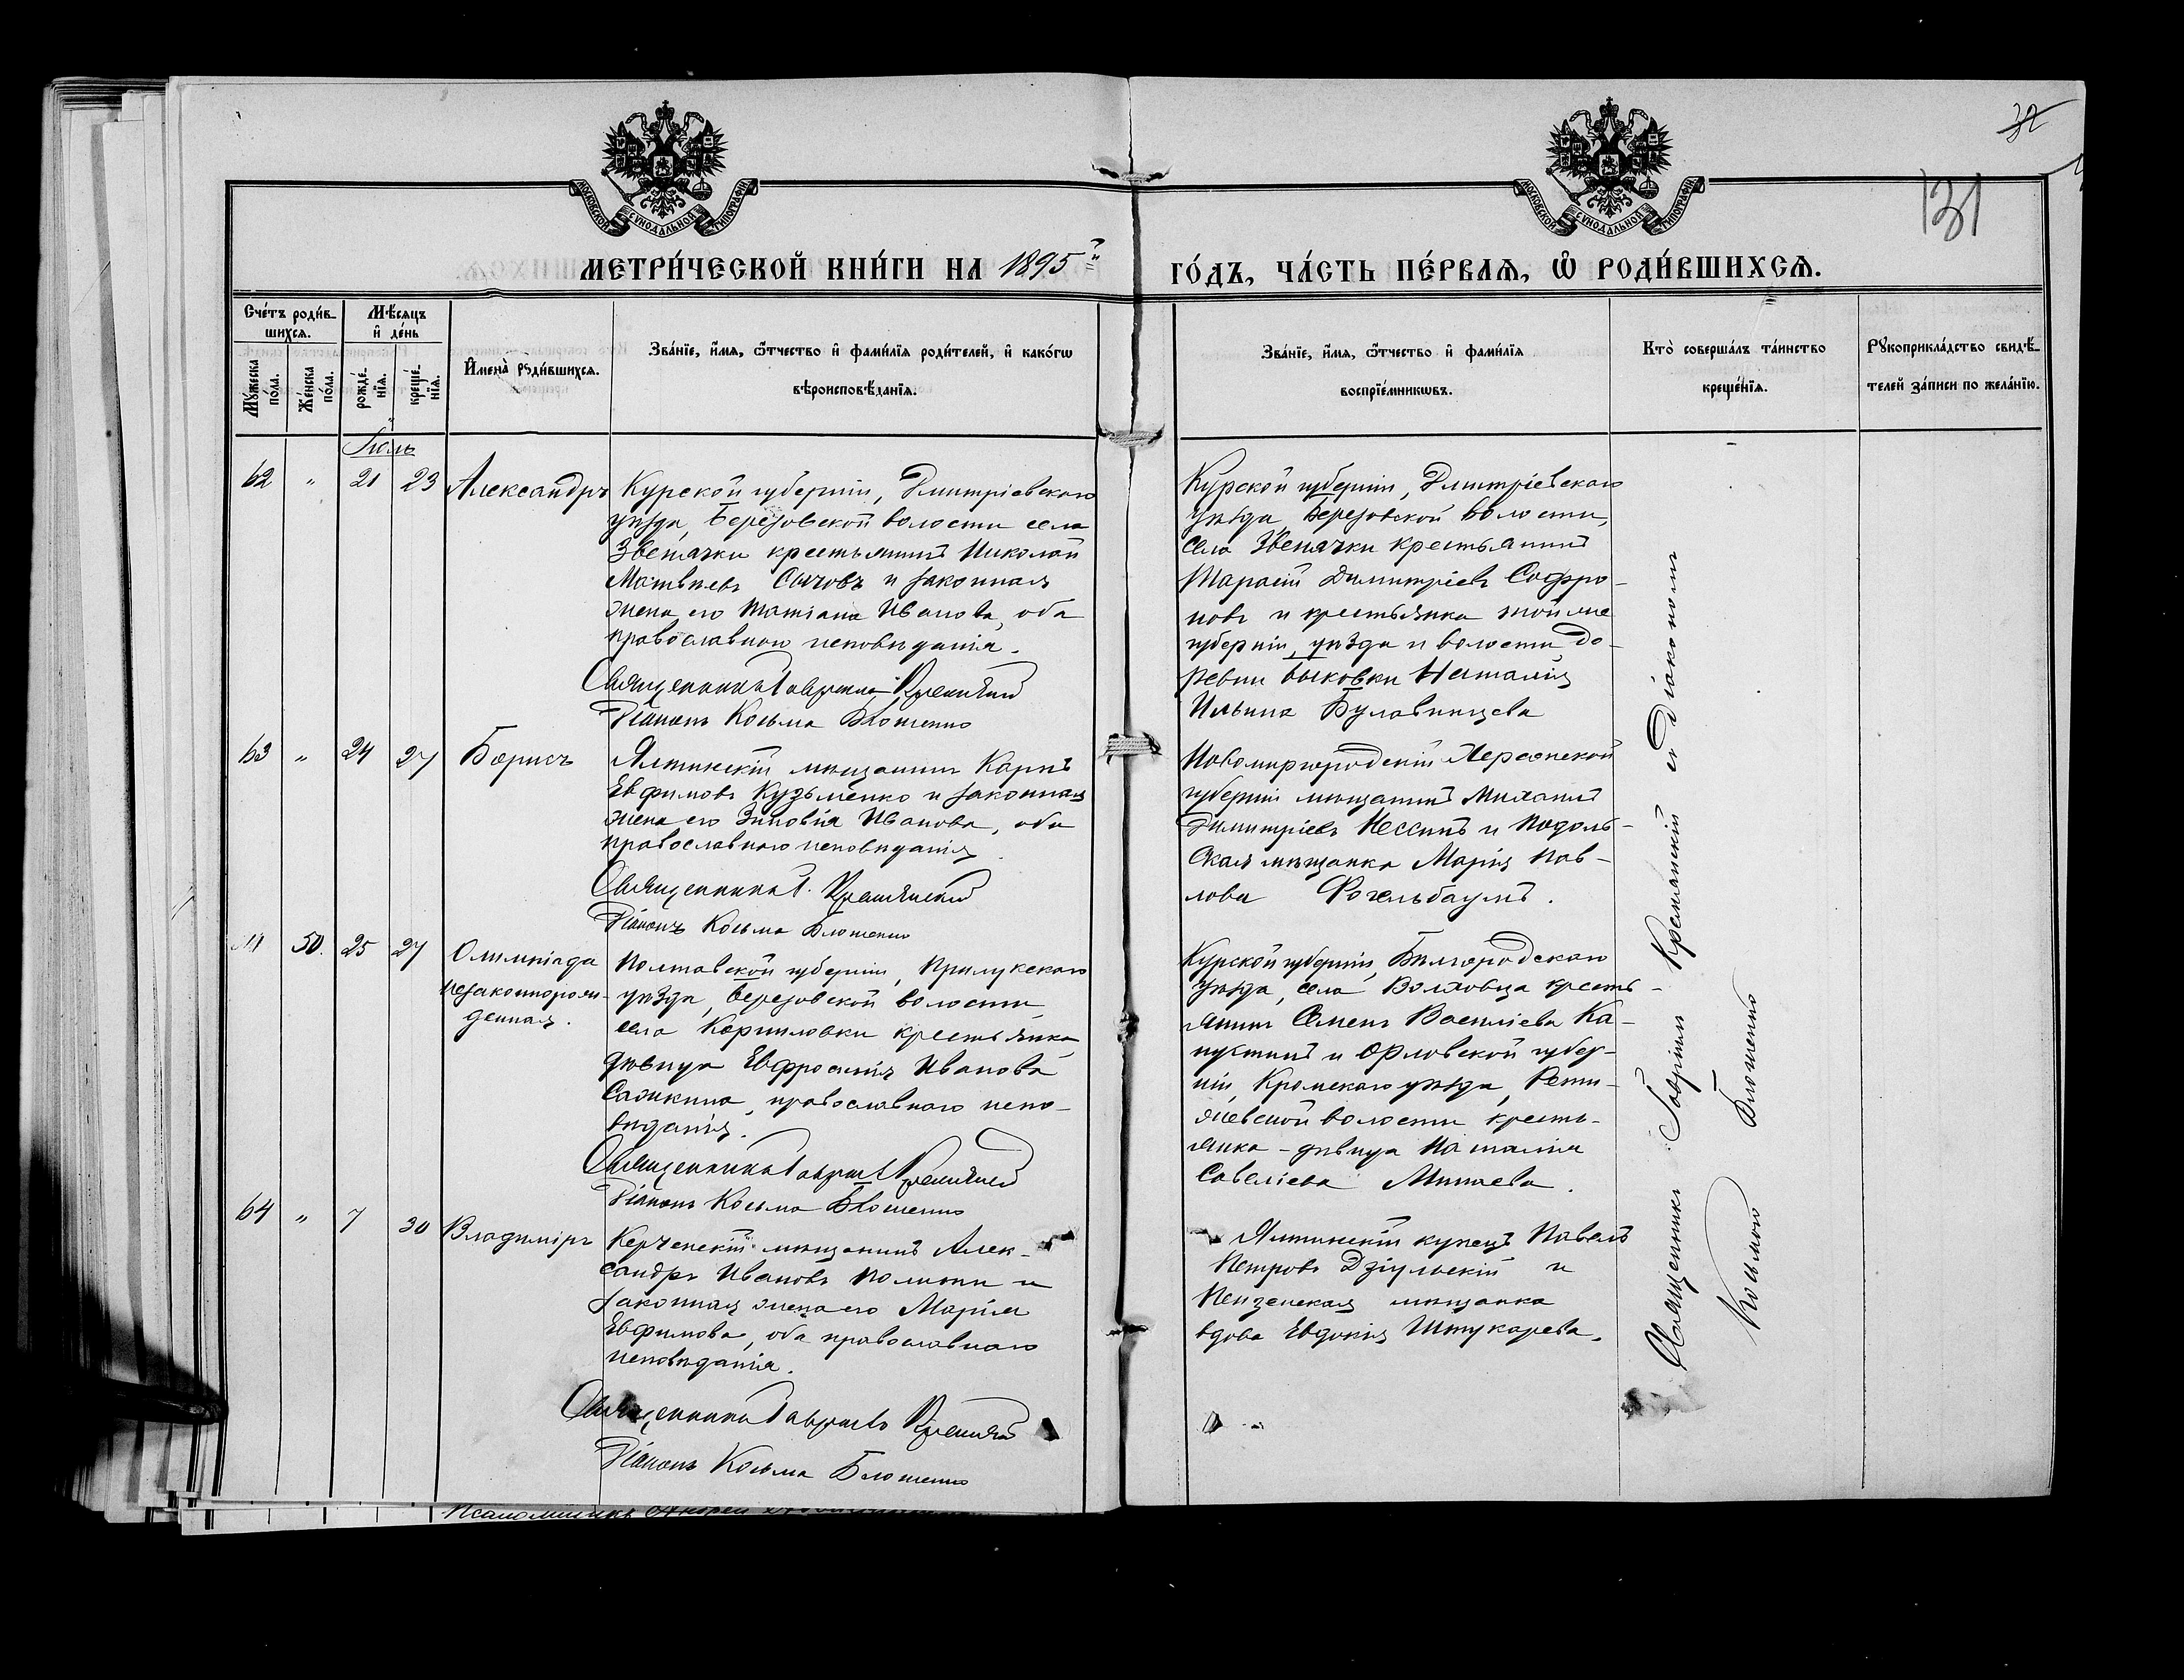 МОСКОВСКОЙ СУНОДАЛЬНОЙ ТИПОГРАФІИ
МОСКОВСКОЙ СУНОДАЛЬНОЙ ТИПОГРАФІИ
32
131
МЕТРИ́ЧЕСКОЙ КНИ́ГИ НА 1895й ГО́ДЪ, ЧА́СТЬ ПЕ́РВАѦ, Ѡ РОДИ́ВШИХСѦ.
Сче́тъ роди́в-
шихсѧ.
Мѣ́сѧцъ
и де́нь
Мꙋ́жеска
по́ла.
Же́нска
по́ла.
рожде́-
нїѧ.
креще́-
нїѧ.
Имена̀ роди́вшихсѧ.
Зва́нїе, и́мѧ, ѻ́тчество и фами́лїѧ роди́телей, и како́гѡ
вѣроисповѣ́данїѧ.
Зва́нїе, и́мѧ, ѻ́тчество и фами́лїѧ
воспрїе́мникѡвъ.
Кто̀ соверша́лъ та́инство
креще́нїѧ.
Рꙋкоприкла́дство свидѣ́-
телей за́писи по жела́нїю.
Іюль
62 " 21 23 Александръ
Курской губерніи, Дмитріевскаго
уѣзда, Березовской волости села
Звенячки крестьянинъ Николай
Матвѣевъ Сычовъ и законная
жена его Татіана Иванова, оба
православнаго исповѣданія.
Священникъ Гавріилъ
Діаконъ Косьма Блошенко
Курской губерніи, Дмитріевскаго
уѣзда, Березовской волости,
села Звенячки крестьянинъ
Тарасій Димитріевъ Софро-
новъ и крестьянка той же
губерніи, уѣзда и волости, де-
ревни Быковки Наталія
Ильина Булавинцева
63 " 24 27 Борисъ
Ялтинскій мѣщанинъ Карпъ
Евфимовъ Кузьменко и законная
жена его Зиновія Иванова, оба
православнаго исповѣданія
Священникъ Г.
Діаконъ Косьма Блошенко
Новомиргородскій Херсонской
губерніи мѣщанинъ Михаилъ
Димитріевъ Нессинъ и Подоль-
ская мѣщанка Марія Пав-
лова Фогельбаумъ.
" 50. 25 27 Олимпіада
незаконнорож-
денная.
Полтавской губерніи, Прилукскаго
уѣзда, Березовской волости,
села Корниловки крестьянка
дѣвица Евфросинія Иванова
Сажкина, православнаго испо-
вѣданія.
Священникъ Гавріилъ
Діаконъ Косьма Блошенко
Курской губерніи, Бѣлгородскаго
уѣзда, села Волховца кресть-
янинъ Семенъ Василіевъ Ка-
пустинъ и Орловской губер-
ніи, Кромскаго уѣзда, Рети-
жевской волости кресть-
янка - дѣвица Наталія
Савеліева Минаева.
64 " 7 30 Владиміръ
Керченскій мѣщанинъ Алек-
сандръ Ивановъ и
законная жена его Марія
Евфимова, оба православнаго
исповѣданія.
Священникъ Гавріилъ
Діаконъ Косьма Блошенко
Ялтинскій купецъ Павелъ
Петровъ Дзіульскій и
Пензенская мѣщанка
вдова Евдокія Штукарева.
Священникъ Гавріилъ съ Діакономъ
Косьмою Блошенко
Псаломщикъ Андрей